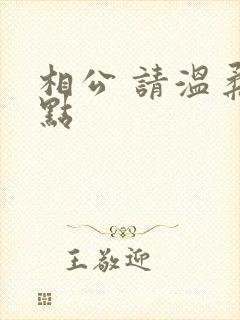 相公 請溫柔
點
王敬迎